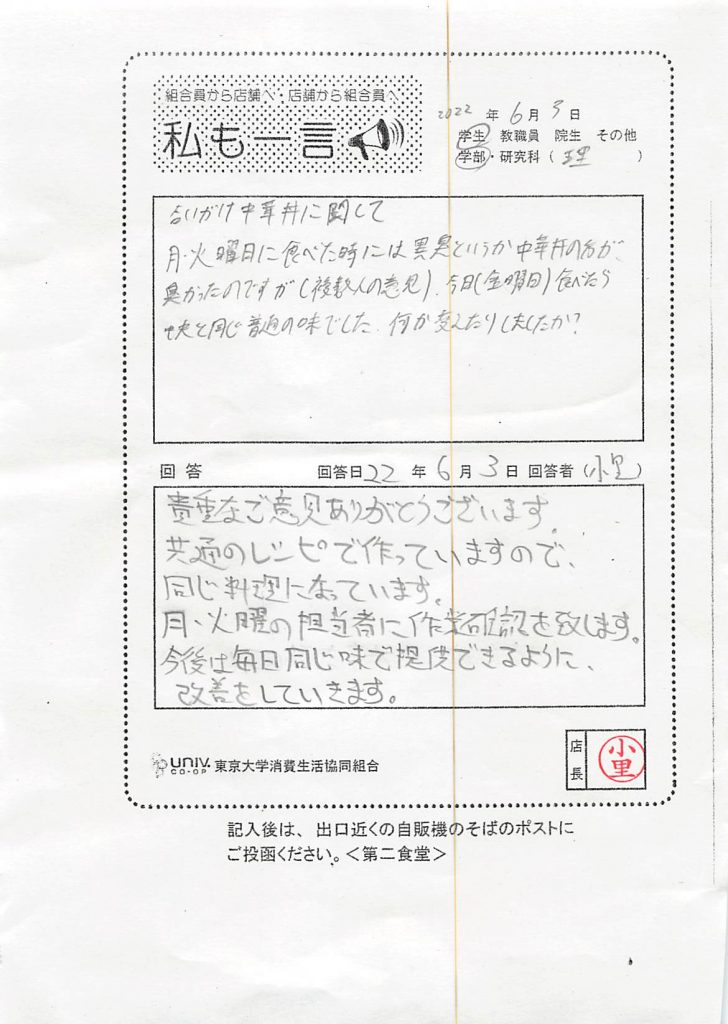 組合員から店舗へ・店舗から組合員へ
私も一言
2022 年 6 月 3 日
学生 教職員 院生 その他
学部・研究科 ( 理 )
あいがけ中華丼に関して
月・火曜日に食べた時には異臭というか中華丼の方が、
臭かったのですが(複数人の意見)、今日(金曜日)食べたら
中央と同じ普通の味でした。何か変えたりしましたか?
回答 回答日 22 年 6 月 3 日 回答者 (小里)
貴重なご意見ありがとうございます。
共通のレシピで作っていますので、
同じ料理になっています。
月・火曜の担当者に作業確認を致します。
今後は毎日同じ味で提供できるように、
改善をしていきます。
UNIV. CO-OP 東京大学消費生活協同組合
店長 小里
記入後は、出口近くの自販機のそばのポストに
ご投函ください。<第二食堂>